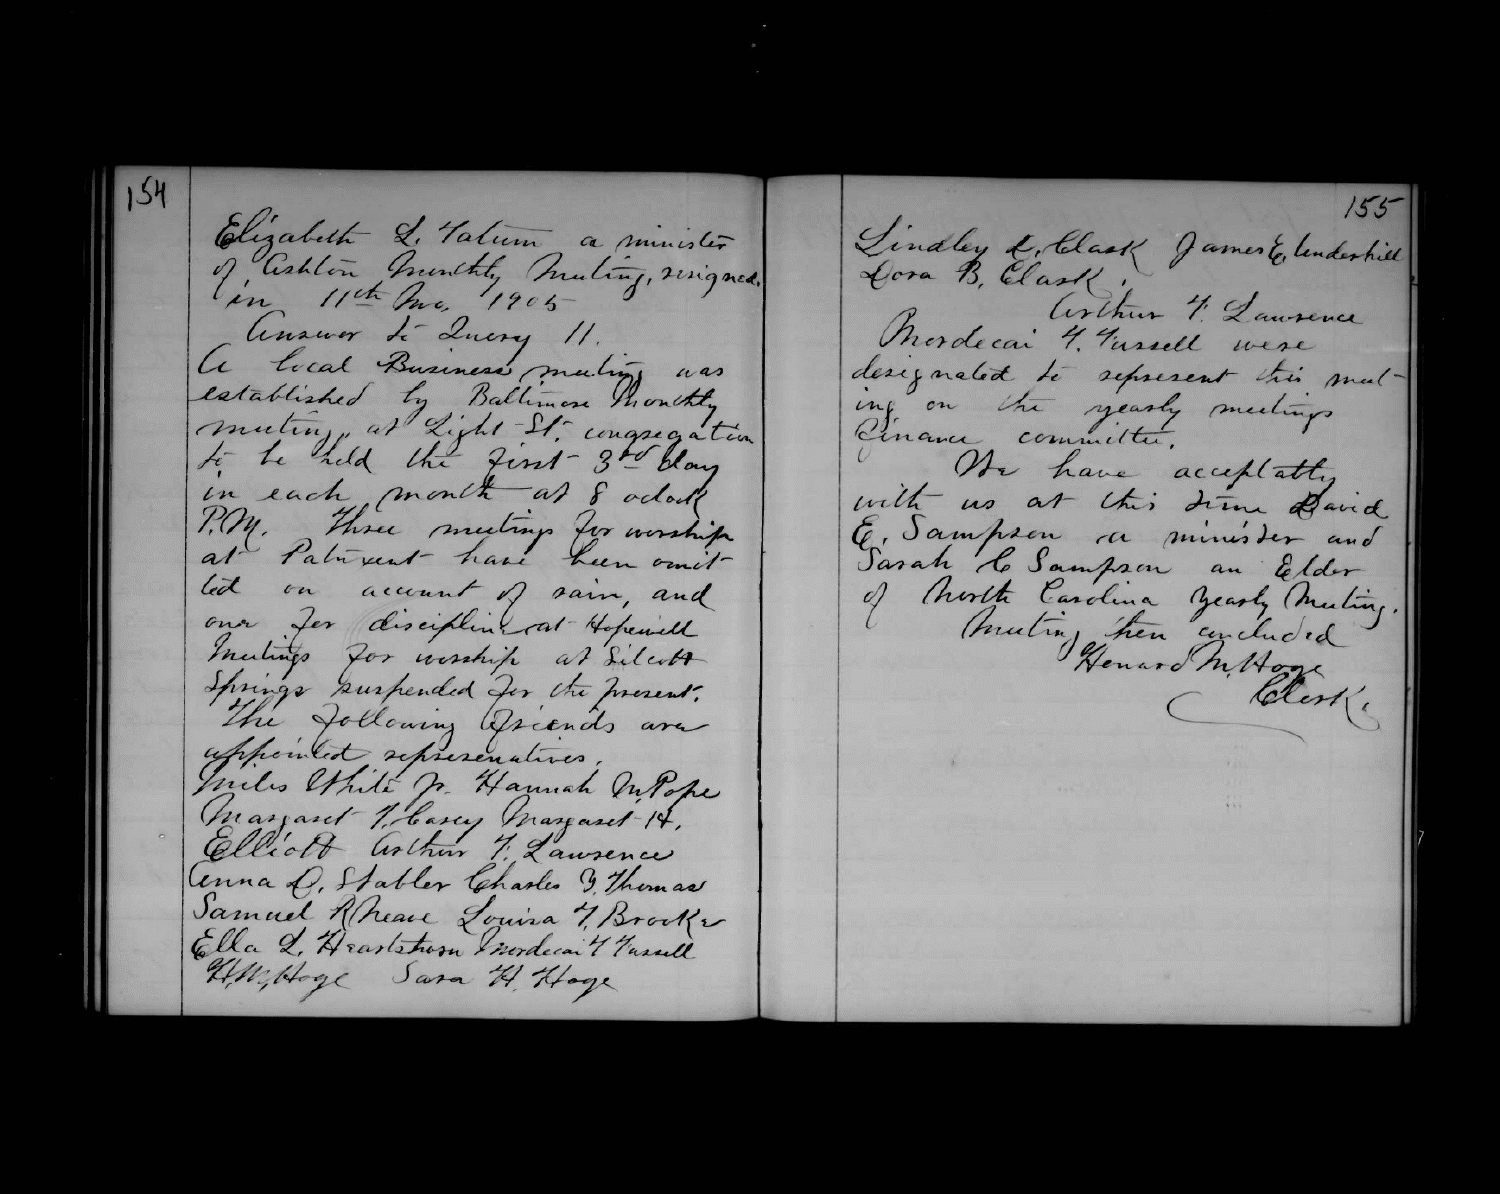 154
Elizabeth L. Tatum a minister
of Ashton Monthly Meeting, resigned.
in 11th Mo. 1905
Answer to Query 11.
A local Business meeting was
established by Baltimore Monthly
meeting, at Light St. congregation
to be held the first 3rd day
in each month at 8 oclock
P.M. Three meetings for worship
at Patuxent have been omit
ted on account of rain, and
one for discipline at Hopewell
Meetings for worship at Silcott
Springs suspended for the present.
The following Friends are
appointed represenatives.
Miles White Jr. Hannah M. Pope
Margaret T. Carey Margaret H.
Elliott Arthur T. Lawrence
Anna D. Stabler Charles Y. Thomas
Samuel R Neave Louisa T. Brooke
Ella L. Heartshorn Mordecai T Fussell
H.M. Hoge Sara H. Hoge
155
Lindley D. Clark James E. Underhill
Dora B. Clark.
Arthur T. Lawrence
Mordecai T. Fussell were
designated to represent this meet-
ing on the yearly meetings
finance committee.
We have acceptably
with us at this time David
E. Sampson a minister and
Sarah C Sampson an Elder
of North Carolina Yearly Meeting.
Meeting then concluded
Howard M. Hoge
Clerk.